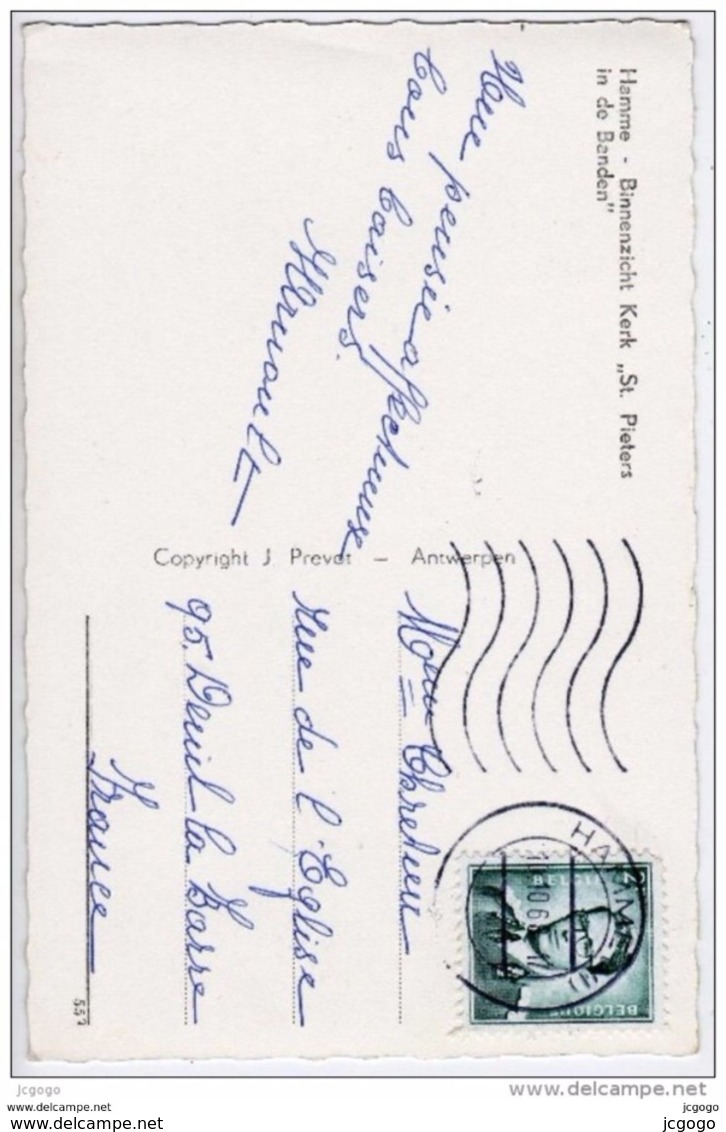 Hamme - Binnenzicht Kerk „St. Pieters
in de Banden"
Une pensée affectueuse
bons baisers
Copyright J Prevot - Antwerpen
Mme Chretien
Rue de l'Eglise
95. Deuil la Barre
France
557
HAMME
BELGIQUE
www.delcampe.net
jcgogo
jcgogo
www.delcampe.net
www.delcampe.net
jcgogo
jcgogo